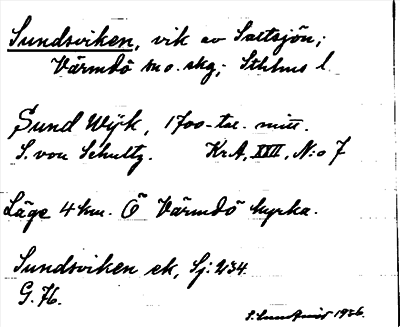 Sundsviken, vik av Saltsjön;
Värmdö sn o. skg; Sthlms l.
Sund Wijk, 1700-tal. mitt.
S. von Schultz. KrA, XXII, N:o 7
Läge 4 km. Ö Värmdö kyrka.
Sundsviken ek, Sj: 234.
G. 76.
1936.